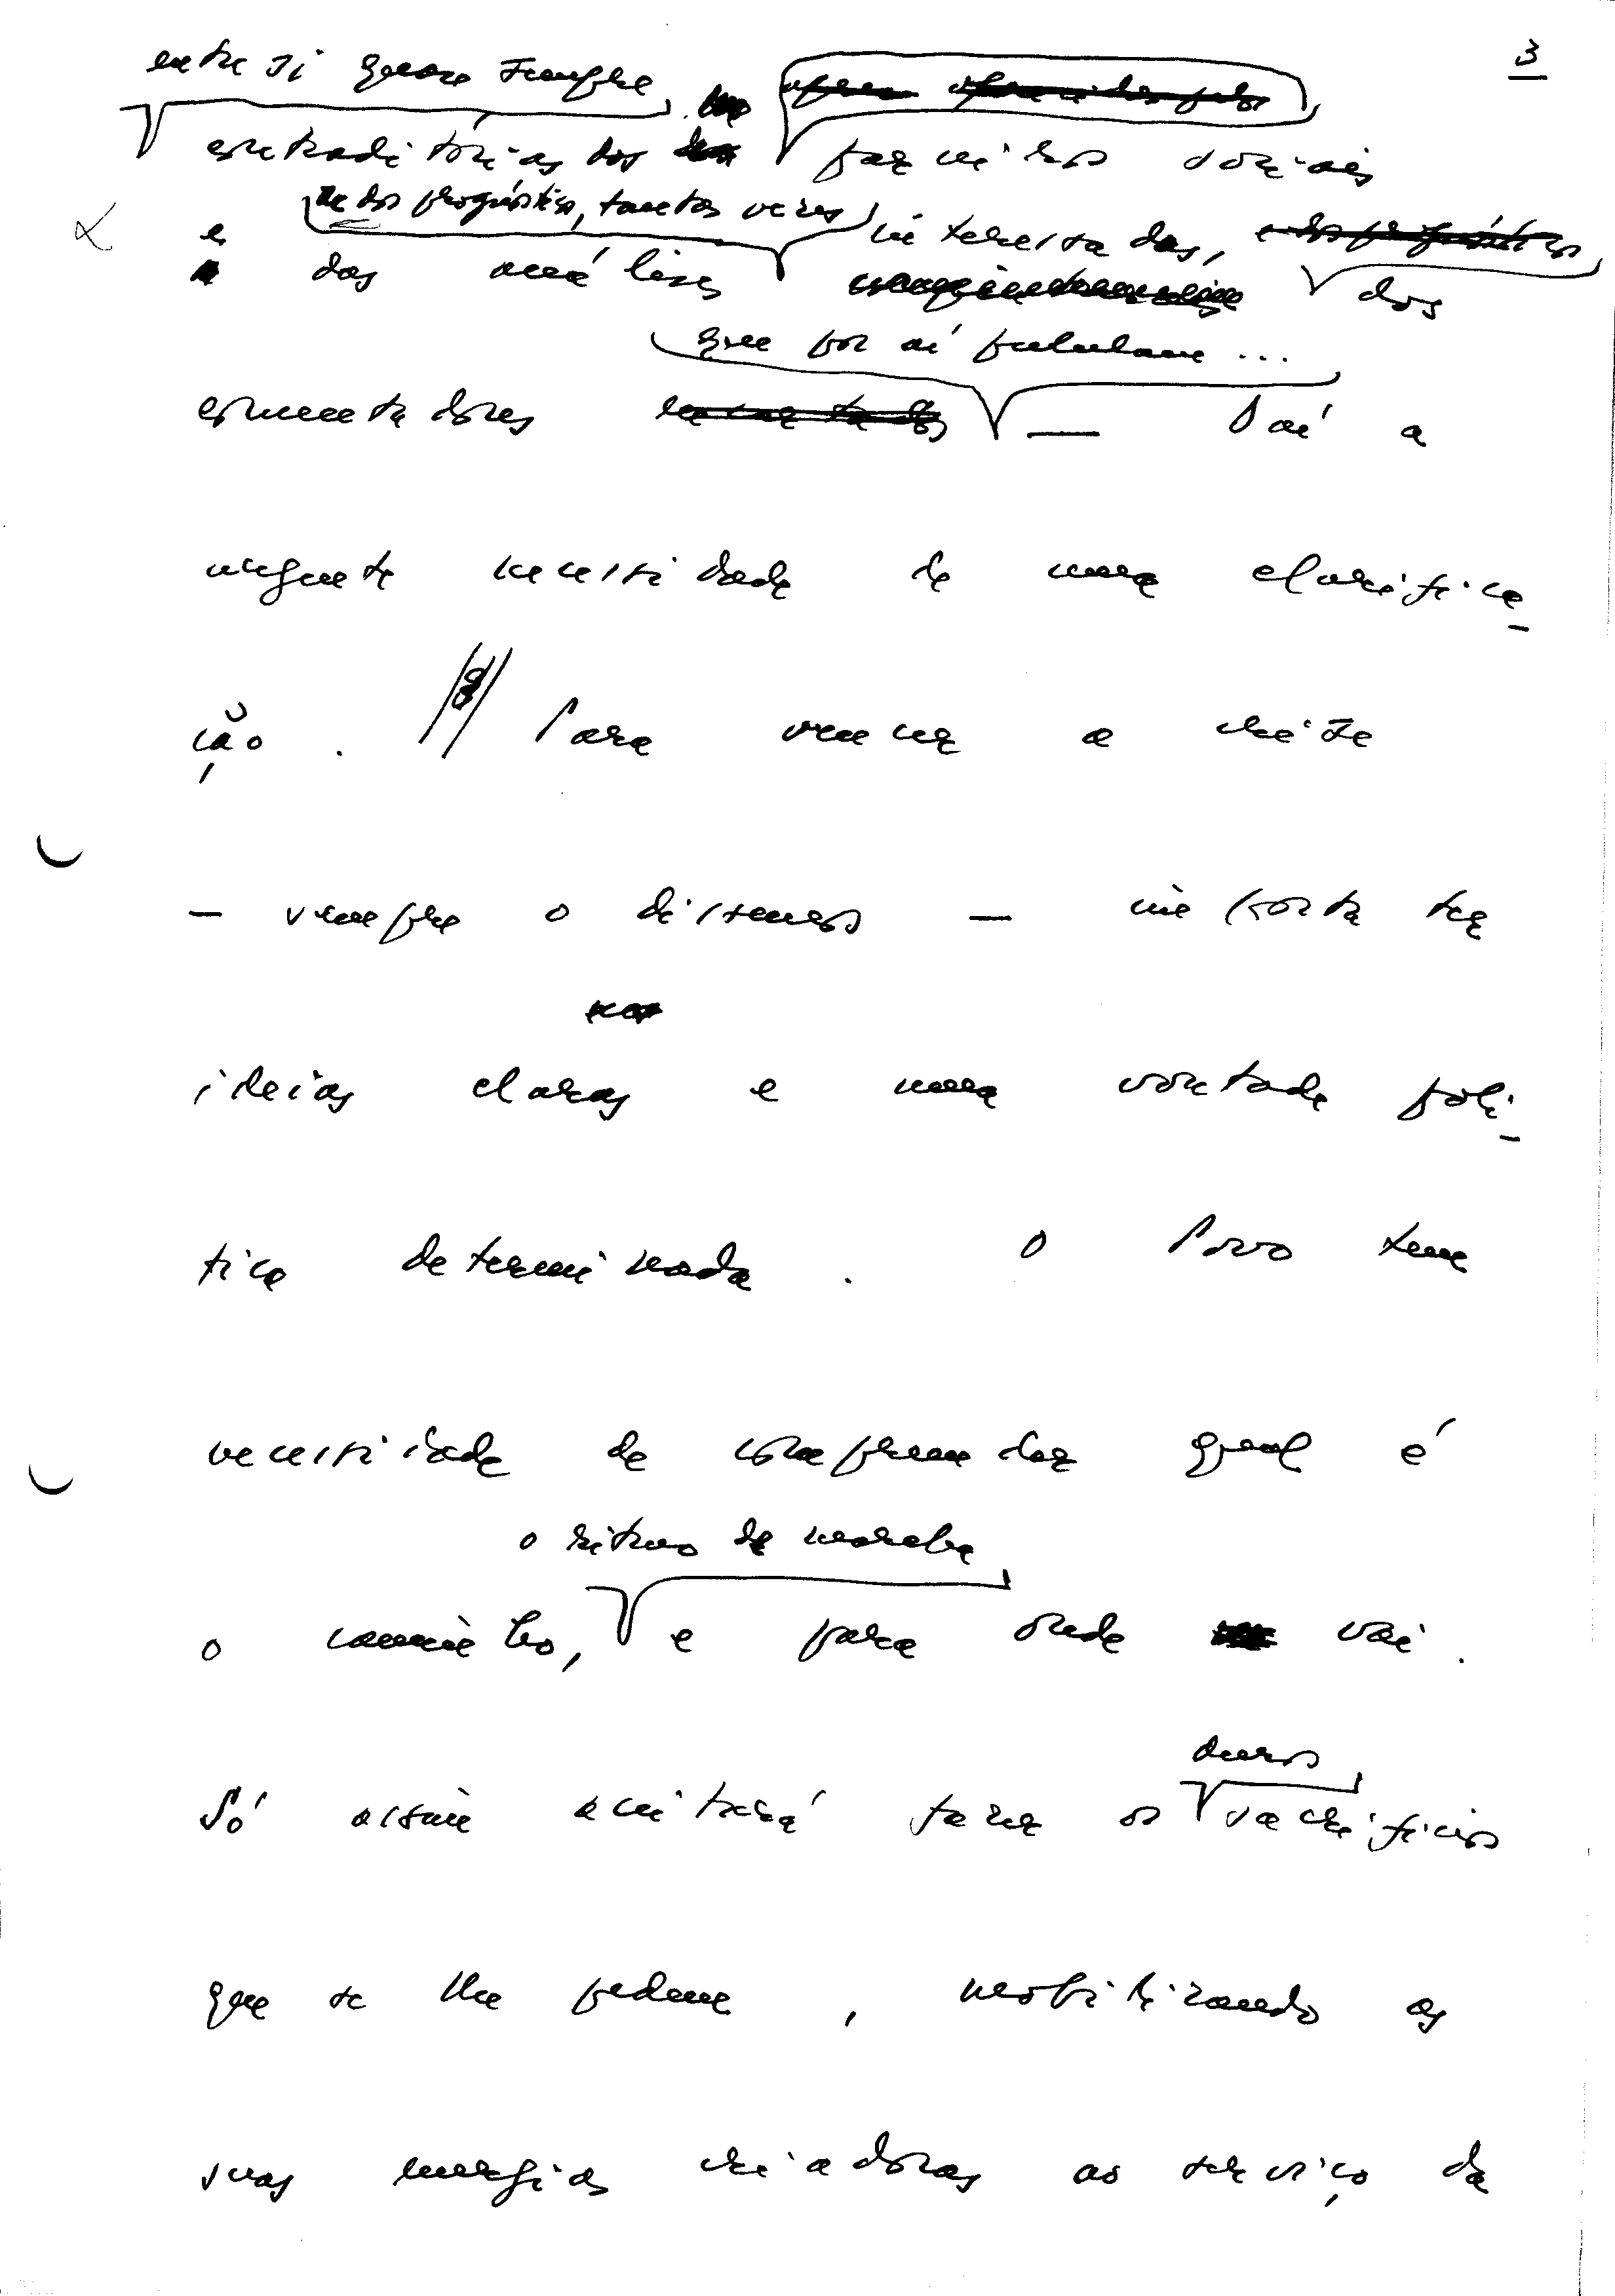 3
entre si quase sempre
contraditórias dos parceiros sociais
e dos prognósticos, tantas vezes
e das análises interessadas, dos
que por aí pululam ...
comentadores — Daí a
urgente necessidade de uma clarifica-
ção. Para vencer a crise
— sempre o dissemos — importa ter
ideias claras e uma vontade polí-
tica determinada. O Povo tem
necessidade de compreender qual é
o ritmo de marcha
o caminho, e para onde vai.
duros
Só assim aceitará fazer os sacrifícios
que se lhe pedem, mobilizando as
suas energias criadoras ao serviço da